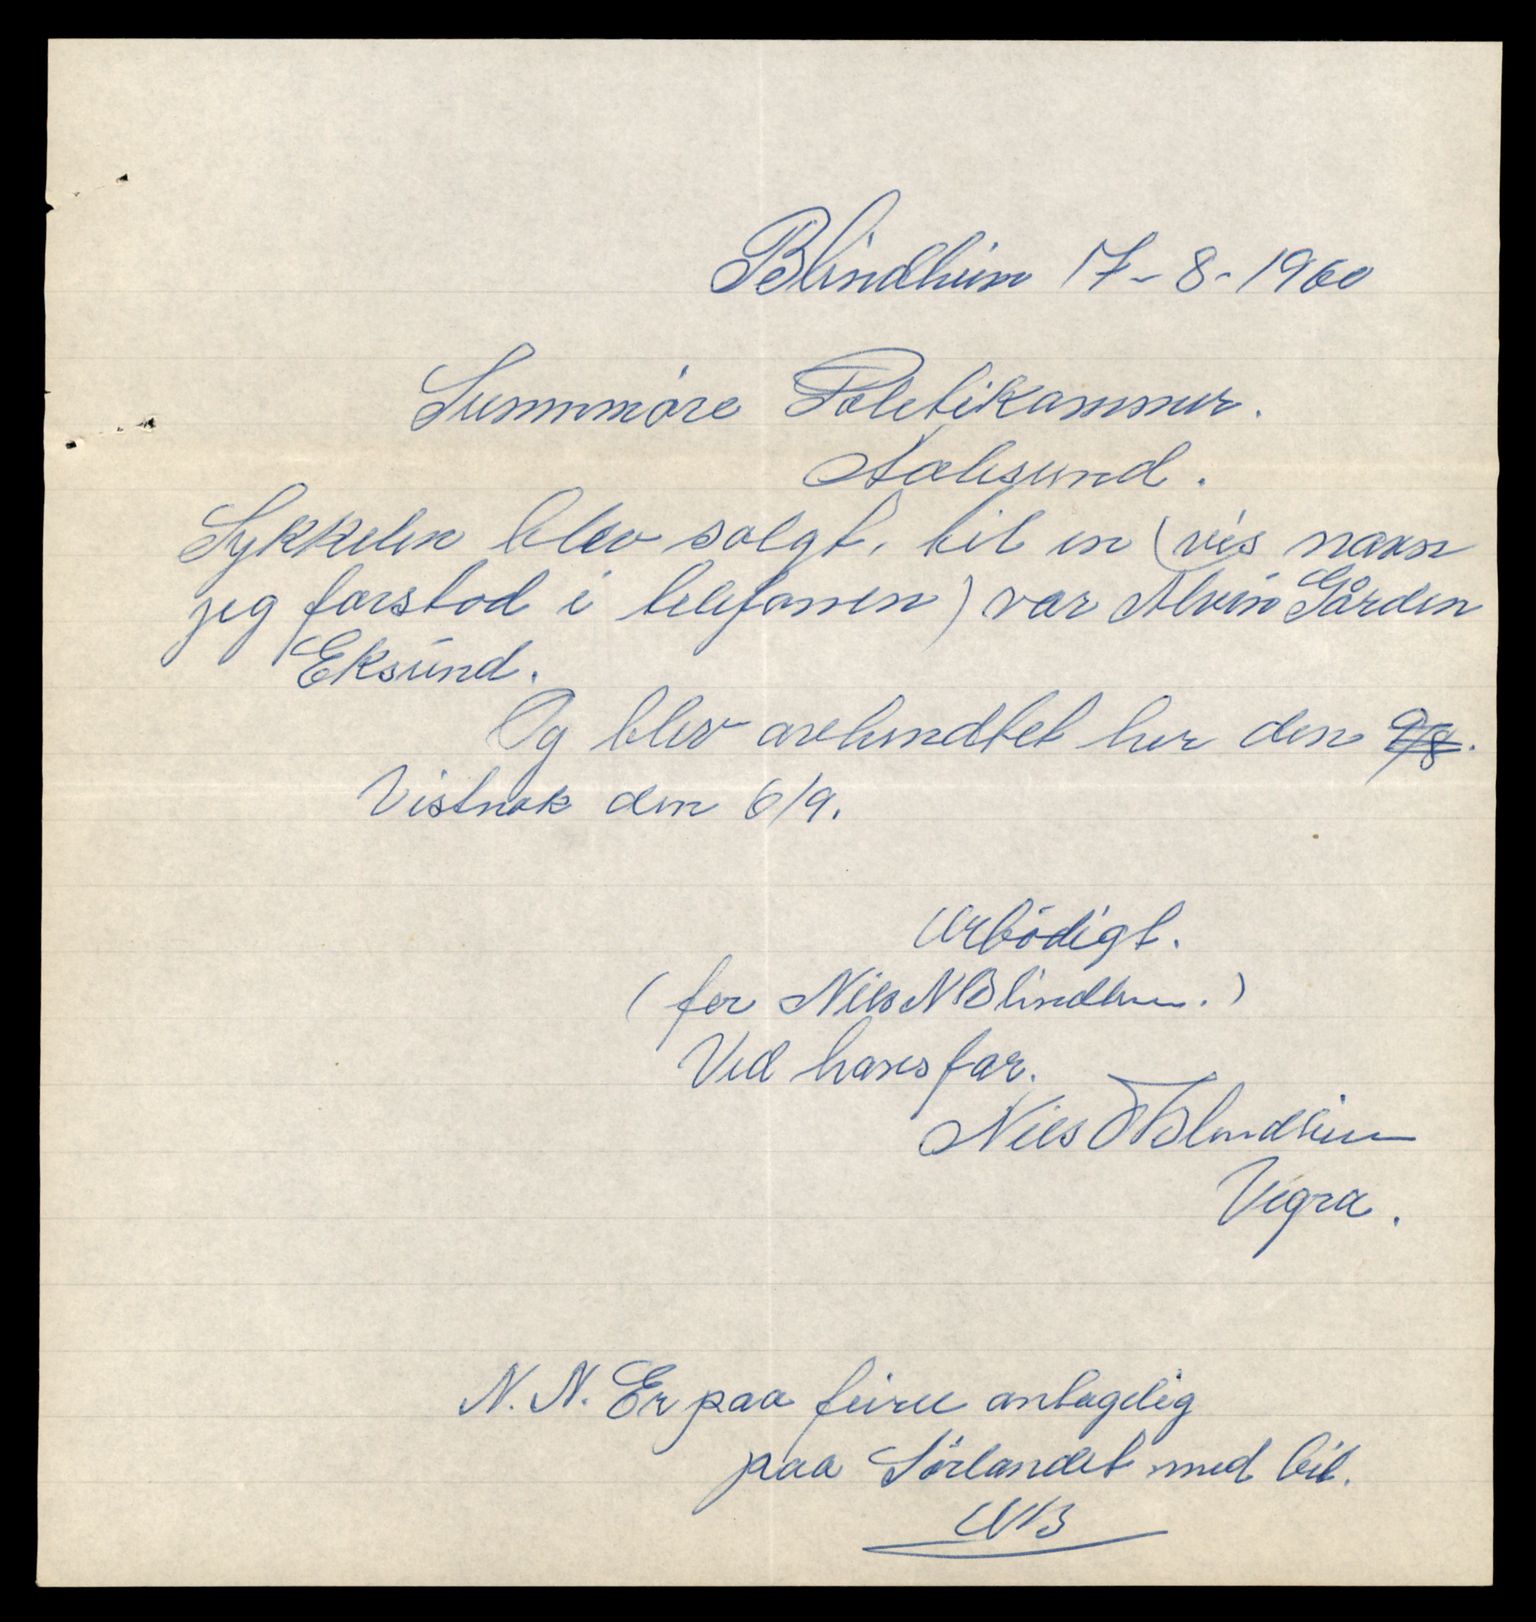 Blindheim 17-8-1960
Sunnmöre Politikammer.
Aalesund.
Sykkelen blev solgt, til en (vis navn
jeg forstod i telefonen) var Alvin Gården
Eksund.
Og blev avhendtet her den 9/8.
Vistnok den 6/9.
Erbödigt.
(for Nils N Blindheim.)
Ved hans far.
Nils Blindheim
Vigra.
N.N. Er paa feiree antagelig
paa Sörlandet med bil.
NB